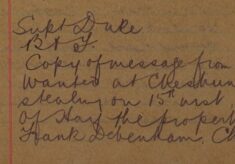 Supt Duke
B & F.
Copy of message from
Wanted at Cheshun
stealing on 15th inst
of Hay the propert
Frank Debenham, Ch